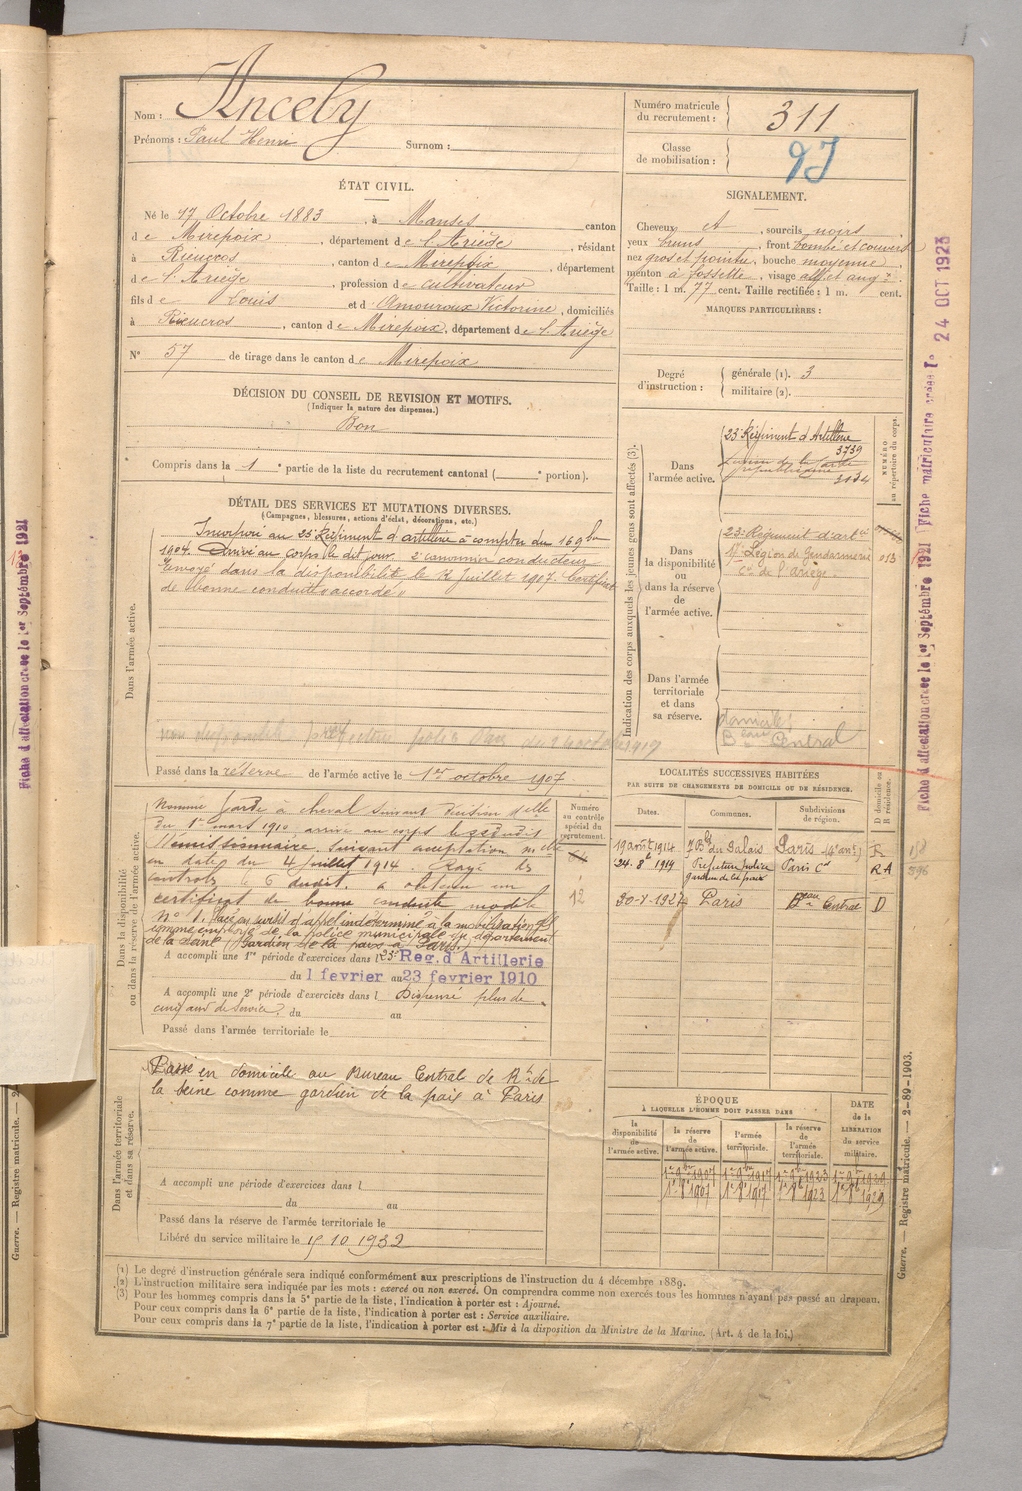 Nom : Ancely
Prénoms : Paul Henri Surnom :
Numéro matricule du recrutement : 311
Classe de mobilisation :
ÉTAT CIVIL.
Né le 17 Octobre 1883, à Manses canton
de Mirepoix, département de l'Ariège, résidant
à Rieucros, canton de Mirepoix, département
de l'Ariège, profession de cultivateur
fils de Louis et d Amouroux Victorine, domiciliés
à Rieucros, canton de Mirepoix, département de l'Ariège
N° 57 de tirage dans le canton de Mirepoix
SIGNALEMENT.
Cheveux et, sourcils noirs
yeux bruns, front bombé et couvert
nez gros et pointu, bouche moyenne
menton à fossette, visage all. et ang.
Taille : 1 m. 77 cent. Taille rectifiée : 1 m. cent.
MARQUES PARTICULIÈRES :
Degré d'instruction : générale (1). 3
militaire (2).
DÉCISION DU CONSEIL DE REVISION ET MOTIFS.
(Indiquer la nature des dispenses.)
Bon
Compris dans la 1e partie de la liste du recrutement cantonal ( e portion).
DÉTAIL DES SERVICES ET MUTATIONS DIVERSES.
(Campagnes, blessures, actions d'éclat, décorations, etc.)
Dans l'armée active.
Incorporé au 23e Régiment d'artillerie à compter du 16 9bre
1904. Arrivé au corps le dit jour. 2e canonnier conducteur
Envoyé dans la disponibilité le juillet 1907. Certificat
de bonne conduite « accordé »
Passé dans la réserve de l'armée active le 1er octobre 1907
Indication des corps auxquels les jeunes gens sont affectés (3).
NUMÉRO au répertoire du corps.
Dans l'armée active.
23e Régiment d'Artillerie
3739
Légion de la Garde
républicaine
Dans la disponibilité ou dans la réserve de l'armée active.
23e Régiment d'art
Légion de Gendarmerie
Cie de l'Ariège
Dans l'armée territoriale et dans sa réserve.
domicile
Beau Central
Dans la disponibilité ou dans la réserve de l'armée active.
Nommé Garde à cheval suivant décision mlle
du 1er mars 1910, arrivé au corps le susdit
Démissionnaire. Suivant acceptation mlle
en date du 4 juillet 1914. Rayé des
contrôles le 6 dudit. a obtenu un
certificat de bonne conduite modèle
N° 1. Placé en sursis d'appel indéterminé à la mobilisation
comme employé de la police municipale du département
de la Seine (Gardien de la paix à Paris.)
A accompli une 1re période d'exercices dans le 23e Reg. d'Artillerie
du 1 fevrier au 23 fevrier 1910
A accompli une 2e période d'exercices dans l Dispensé plus de
cinq ans de service du au
Passé dans l'armée territoriale le
Numéro au contrôle spécial du recrutement.
12
LOCALITÉS SUCCESSIVES HABITÉES
PAR SUITE DE CHANGEMENTS DE DOMICILE OU DE RÉSIDENCE.
Dates. Communes. Subdivisions de région. D domicile ou R résidence.
19 août 1914 7 Bd du Palais Paris (4e arrt) R
24-8bre 1914 Préfecture police Paris Cal RA
gardien de la paix
30-1-1927 Paris Beau Central D
Dans l'armée territoriale et dans sa réserve.
Passé en domicile au Bureau Central de Rt de
la Seine comme gardien de la paix à Paris
A accompli une période d'exercices dans l
du au
Passé dans la réserve de l'armée territoriale le
Libéré du service militaire le 15 10 1932
ÉPOQUE
À LAQUELLE L'HOMME DOIT PASSER DANS
la disponibilité de l'armée active. la réserve de l'armée active. l'armée territoriale. la réserve de l'armée territoriale. DATE de la LIBÉRATION du service militaire.
1er 9bre 1907 1er 9bre 1917 1er 9bre 1923 1er 9bre 1929
1er 8bre 1907 1er 8bre 1917 1er 8bre 1923 1er 8bre 1929
(1) Le degré d'instruction générale sera indiqué conformément aux prescriptions de l'instruction du 4 décembre 1889.
(2) L'instruction militaire sera indiquée par les mots : exercé ou non exercé. On comprendra comme non exercés tous les hommes n'ayant pas passé au drapeau.
(3) Pour les hommes compris dans la 5e partie de la liste, l'indication à porter est : Ajourné.
Pour ceux compris dans la 6e partie de la liste, l'indication à porter est : Service auxiliaire.
Pour ceux compris dans la 7e partie de la liste, l'indication à porter est : Mis à la disposition du Ministre de la Marine. (Art. 4 de la loi.)
Guerre. — Registre matricule. — 2-89-1903.
Fiche d'affectation créée le 1er Septembre 1921
Fiche matriculaire créée le 24 OCT 1923
Fiche d'affectation créée le 1er Septembre 1921
Guerre. — Registre matricule. — 2